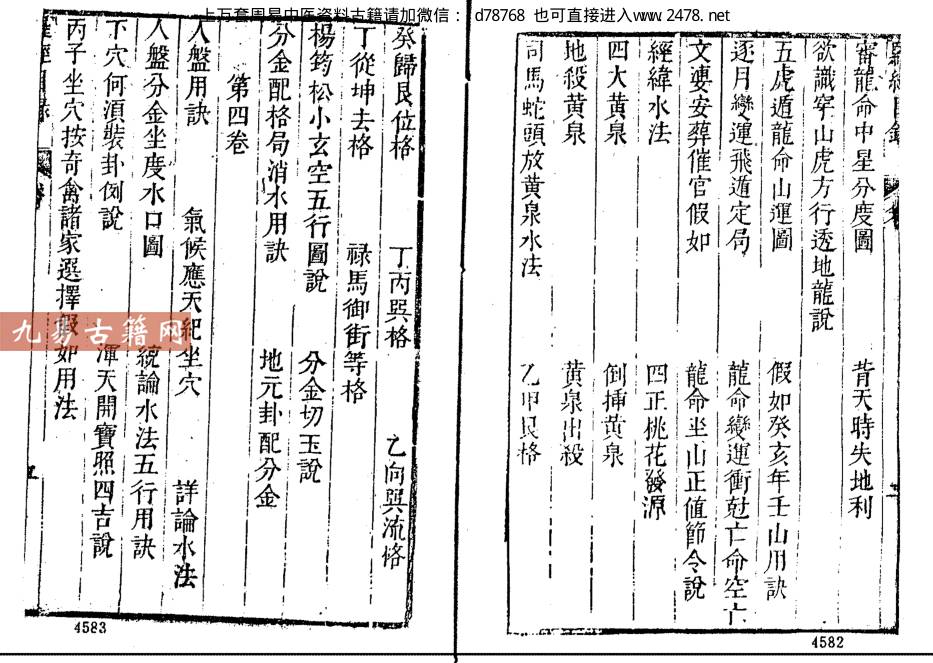 上万套周易中医资料古籍请加微信： d78768 也可直接进入www.2478.net
審龍命中星分度圖 背天時失地利
欲識穿山虎方行透地龍說
五虎遁龍命山運圖 假如癸亥年壬山用訣
逐月變運飛遁定局 龍命變運衝尅亡命空亡
文㜢安葬催官假如 龍命坐山正値節令說
經緯水法 四正桃花發源
四大黃泉 倒挿黃泉
地殺黃泉 黃泉出殺
司馬蛇頭放黃泉水法 乙甲艮格
4582
癸歸艮位格 丁丙巽格 乙向巽流格
丁從坤去格 禄馬御街等格
楊筠松小玄空五行圖說 分金切玉說
分金配格局消水用訣 地元卦配分金
第四卷
人盤用訣 氣候應天紀坐穴 詳論水法
人盤分金坐度水口圖 統論水法五行用訣
下穴何須裝卦例說 渾天開寶照四吉說
丙子坐穴按奇禽諸家選擇假如用法
4583
九易古籍网